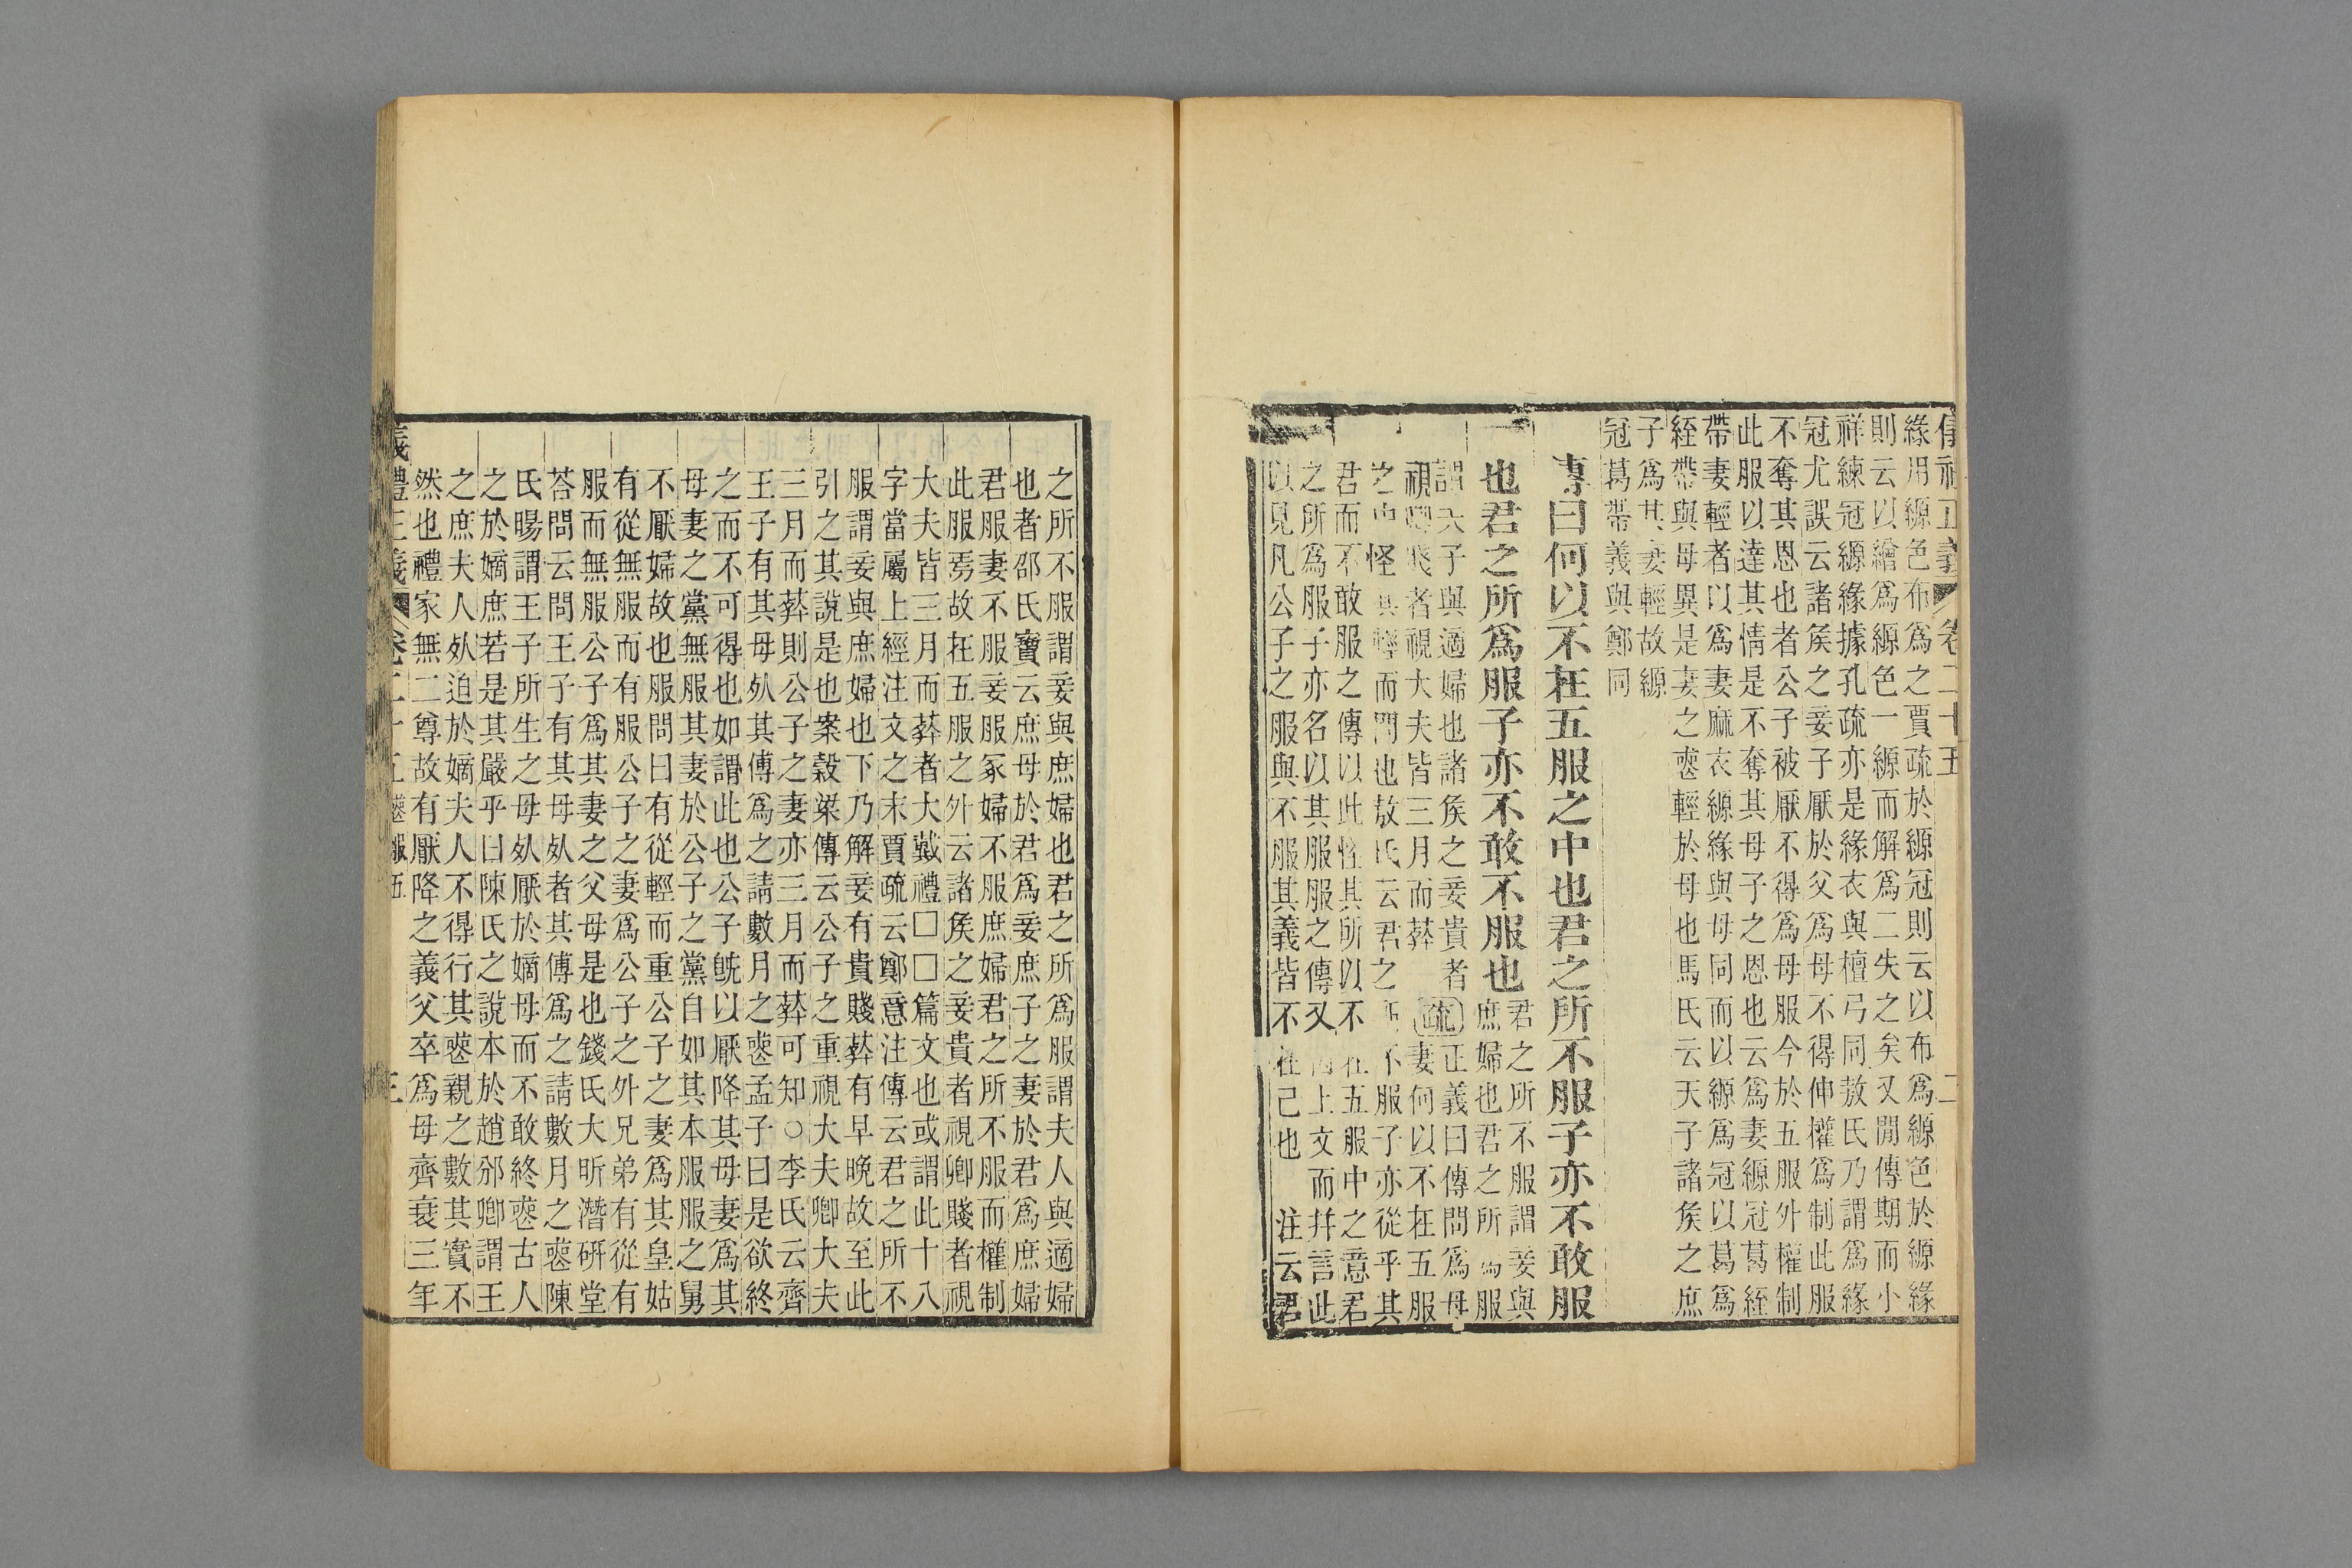 儀禮正義 卷二十五 二
緣用縓色布爲之賈疏於縓冠則云以布爲縓色於縓緣
則云以繪爲縓色一縓而解爲二失之矣又閒傳期而小
祥練冠縓緣據孔疏亦是緣衣與檀弓同敖氏乃謂爲緣
冠尤誤云諸矦之妾子厭於父爲母不得伸權爲制此服
不奪其恩也者公子被厭不得爲母服今於五服外權制
此服以達其情是不奪其母子之恩也云爲妻縓冠葛絰
帶妻輕者以爲妻麻衣縓緣與母同而以縓爲冠以葛爲
絰帶與母異是妻之喪輕於母也馬氏云天子諸矦之庶
子爲其妻輕故縓
冠葛帶義與鄭同
傳曰何以不在五服之中也君之所不服子亦不敢服
也君之所爲服子亦不敢不服也君之所不服謂妾與
庶婦也君之所爲服
謂夫子與適婦也諸矦之妾貴者正義曰傳問爲母
視卿賤者視大夫皆三月而葬疏妻何以不在五服
之中怪其輕而問也敖氏云君之所不服子亦從乎其
君而不敢服之傳以此怪其所以不在五服中之意君
之所爲服子亦名以其服服之傳又因上文而幷言此
以見凡公子之服與不服其義皆不在己也 注云君
之所不服謂妾與庶婦也君之所爲服謂夫人與適婦
也者邵氏寶云庶母於君爲妾庶子之妻於君爲庶婦
君服妻不服妾服冢婦不服庶婦君之所不服而權制
此服焉故在五服之外云諸矦之妾貴者視卿賤者視
大夫皆三月而葬者大戴禮□□篇文也或謂此十八
字當屬上經注文之末賈疏云鄭意注傳云君之所不
服謂妾與庶婦也下乃解妾有貴賤葬有早晚故至此
引之其說是也案穀梁傳云公子之重視大夫卿大夫
三月而葬則公子之妻亦三月而葬可知○李氏云齊
王子有其母死其傅爲之請數月之喪孟子曰是欲終
之而不可得也如謂此也公子旣以厭降其母妻爲其
母妻之黨無服其妻於公子之黨自如其本服服之舅
不厭婦故也服問曰有從輕而重公子之妻爲其皇姑
有從無服而有服公子之妻爲公子之外兄弟有從有
服而無服公子爲其妻之父母是也錢氏大昕潛硏堂
荅問云問王子有其母死者其傅爲之請數月之喪陳
氏暘謂王子所生之母死厭於嫡母而不敢終喪古人
之於嫡庶若是其嚴乎曰陳氏之說本於趙邠卿謂王
之庶夫人死迫於嫡夫人不得行其喪親之數其實不
然也禮家無二尊故有厭降之義父卒爲母齊衰三年
義禮正義 卷二十五 喪服五 三